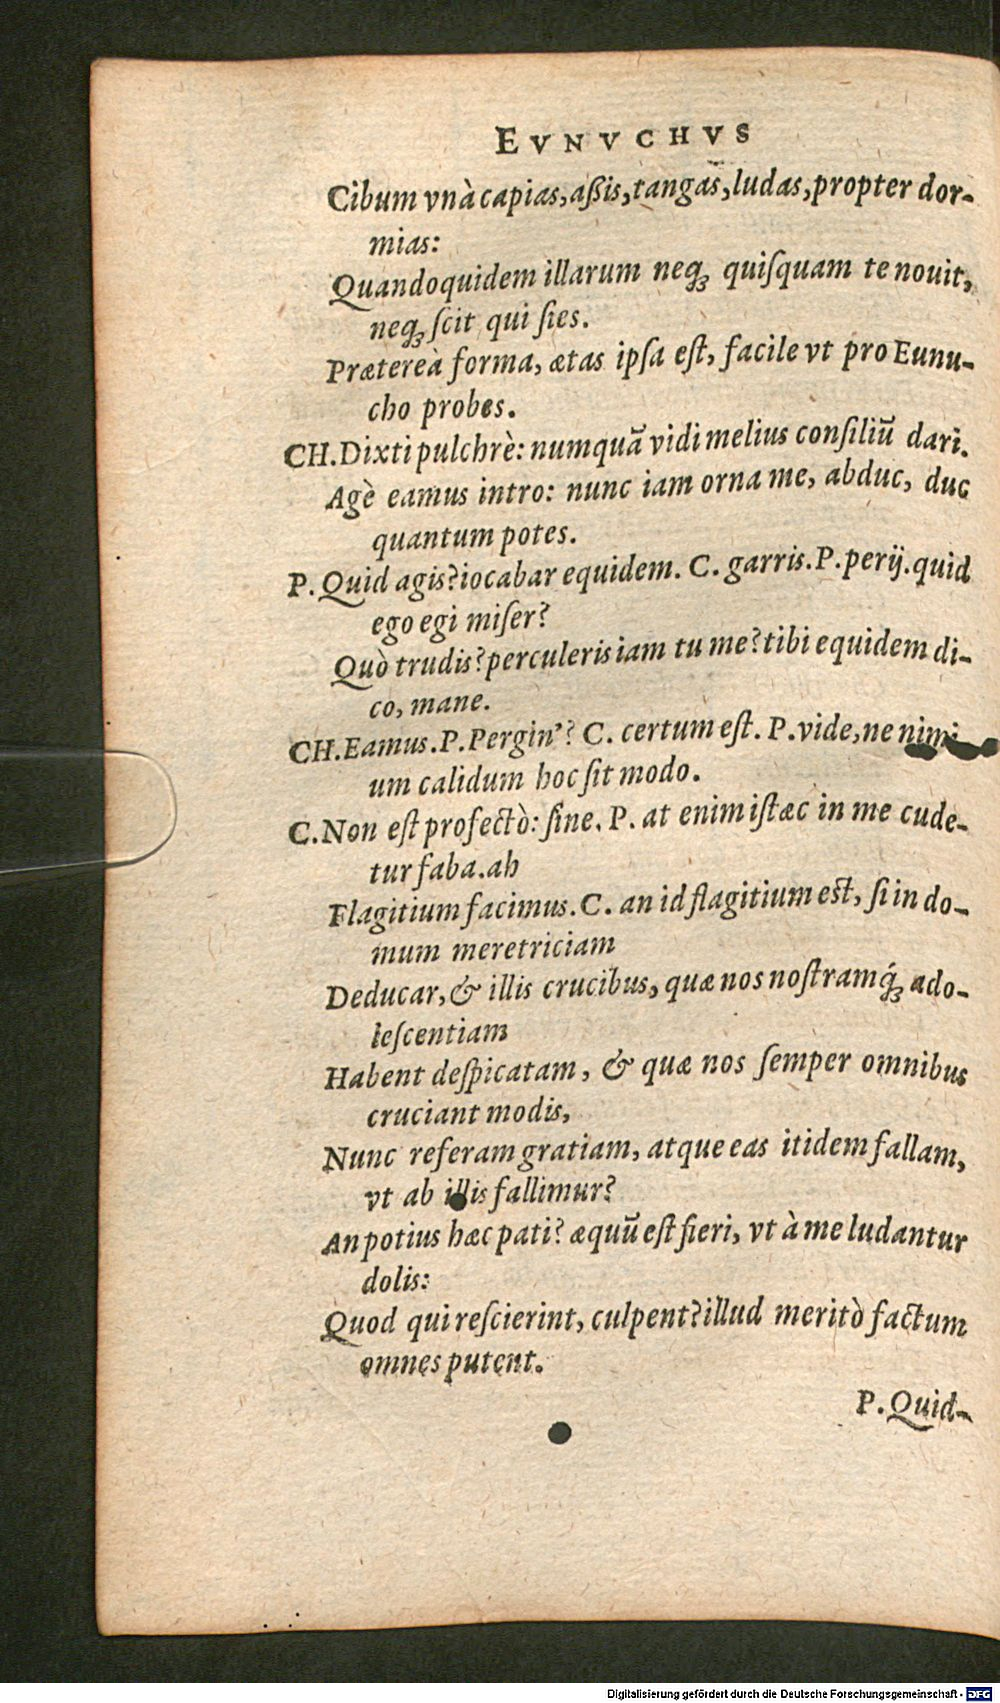 EVNVCHVS
Cibum vnà capias, aßis, tangas, ludas, propter dor-
mias:
Quandoquidem illarum neq́ꝫ quiſquam te nouit,
neqꝫ ſcit qui ſies.
Prætereà forma, ætas ipſa eſt, facile vt pro Eunu-
cho probes.
CH. Dixti pulchrè: numquã vidi melius conſiliũ dari.
Agè eamus intro: nunc iam orna me, abduc, duc
quantum potes.
P. Quid agis? iocabar equidem. C. garris. P. perij. quid
ego egi miſer?
Quò trudis? perculeris iam tu me? tibi equidem di-
co, mane.
CH. Eamus. P. Pergin'? C. certum eſt. P. vide, ne nimi
um calidum hoc ſit modo.
C. Non eſt profectò: ſine. P. at enim iſtæc in me cude-
tur faba. ah
Flagitium facimus. C. an id flagitium est, ſi in do-
mum meretriciam
Deducar, & illis crucibus, quæ nos noſtramq́ꝫ ado-
leſcentiam
Habent deſpicatam, & quæ nos ſemper omnibus
cruciant modis,
Nunc referam gratiam, atque eas itidem fallam,
vt ab illis fallimur?
An potius hæc pati? æquũ eſt fieri, vt à me ludantur
dolis:
Quod qui reſcierint, culpent? illud meritò factum
omnes putent.
P. Quid-
Digitalisierung gefördert durch die Deutsche Forschungsgemeinschaft - DFG